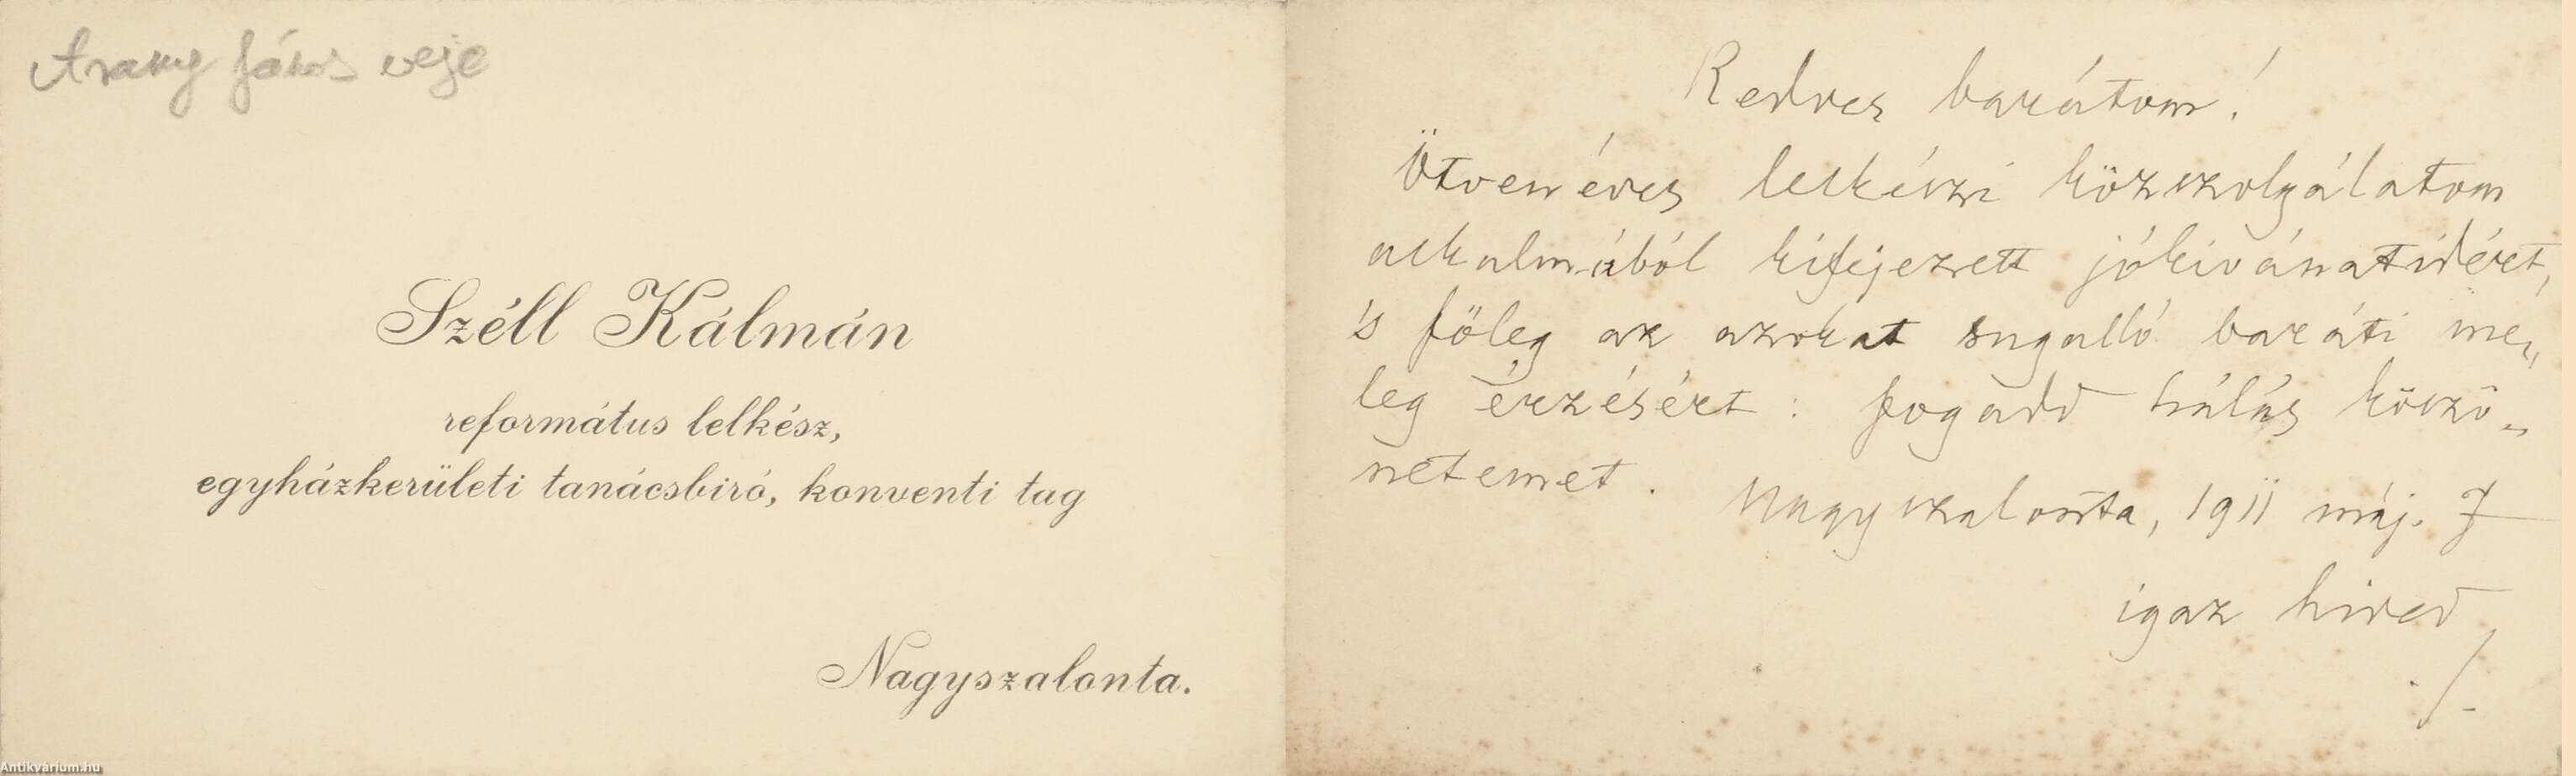 Arany János veje
Széll Kálmán
református lelkész,
egyházkerületi tanácsbiró, konventi tag
Nagyszalonta.
Kedves barátom!
Ötvenéves lelkészi közszolgálatom
alkalmából kifejezett jókivánatidért,
's főleg az azokat sugalló baráti me„
leg érzésért: fogadd hálás köszö„
netemet.
Nagyszalonta, 1911 máj. 7
igaz hived
./-
Antikvárium.hu